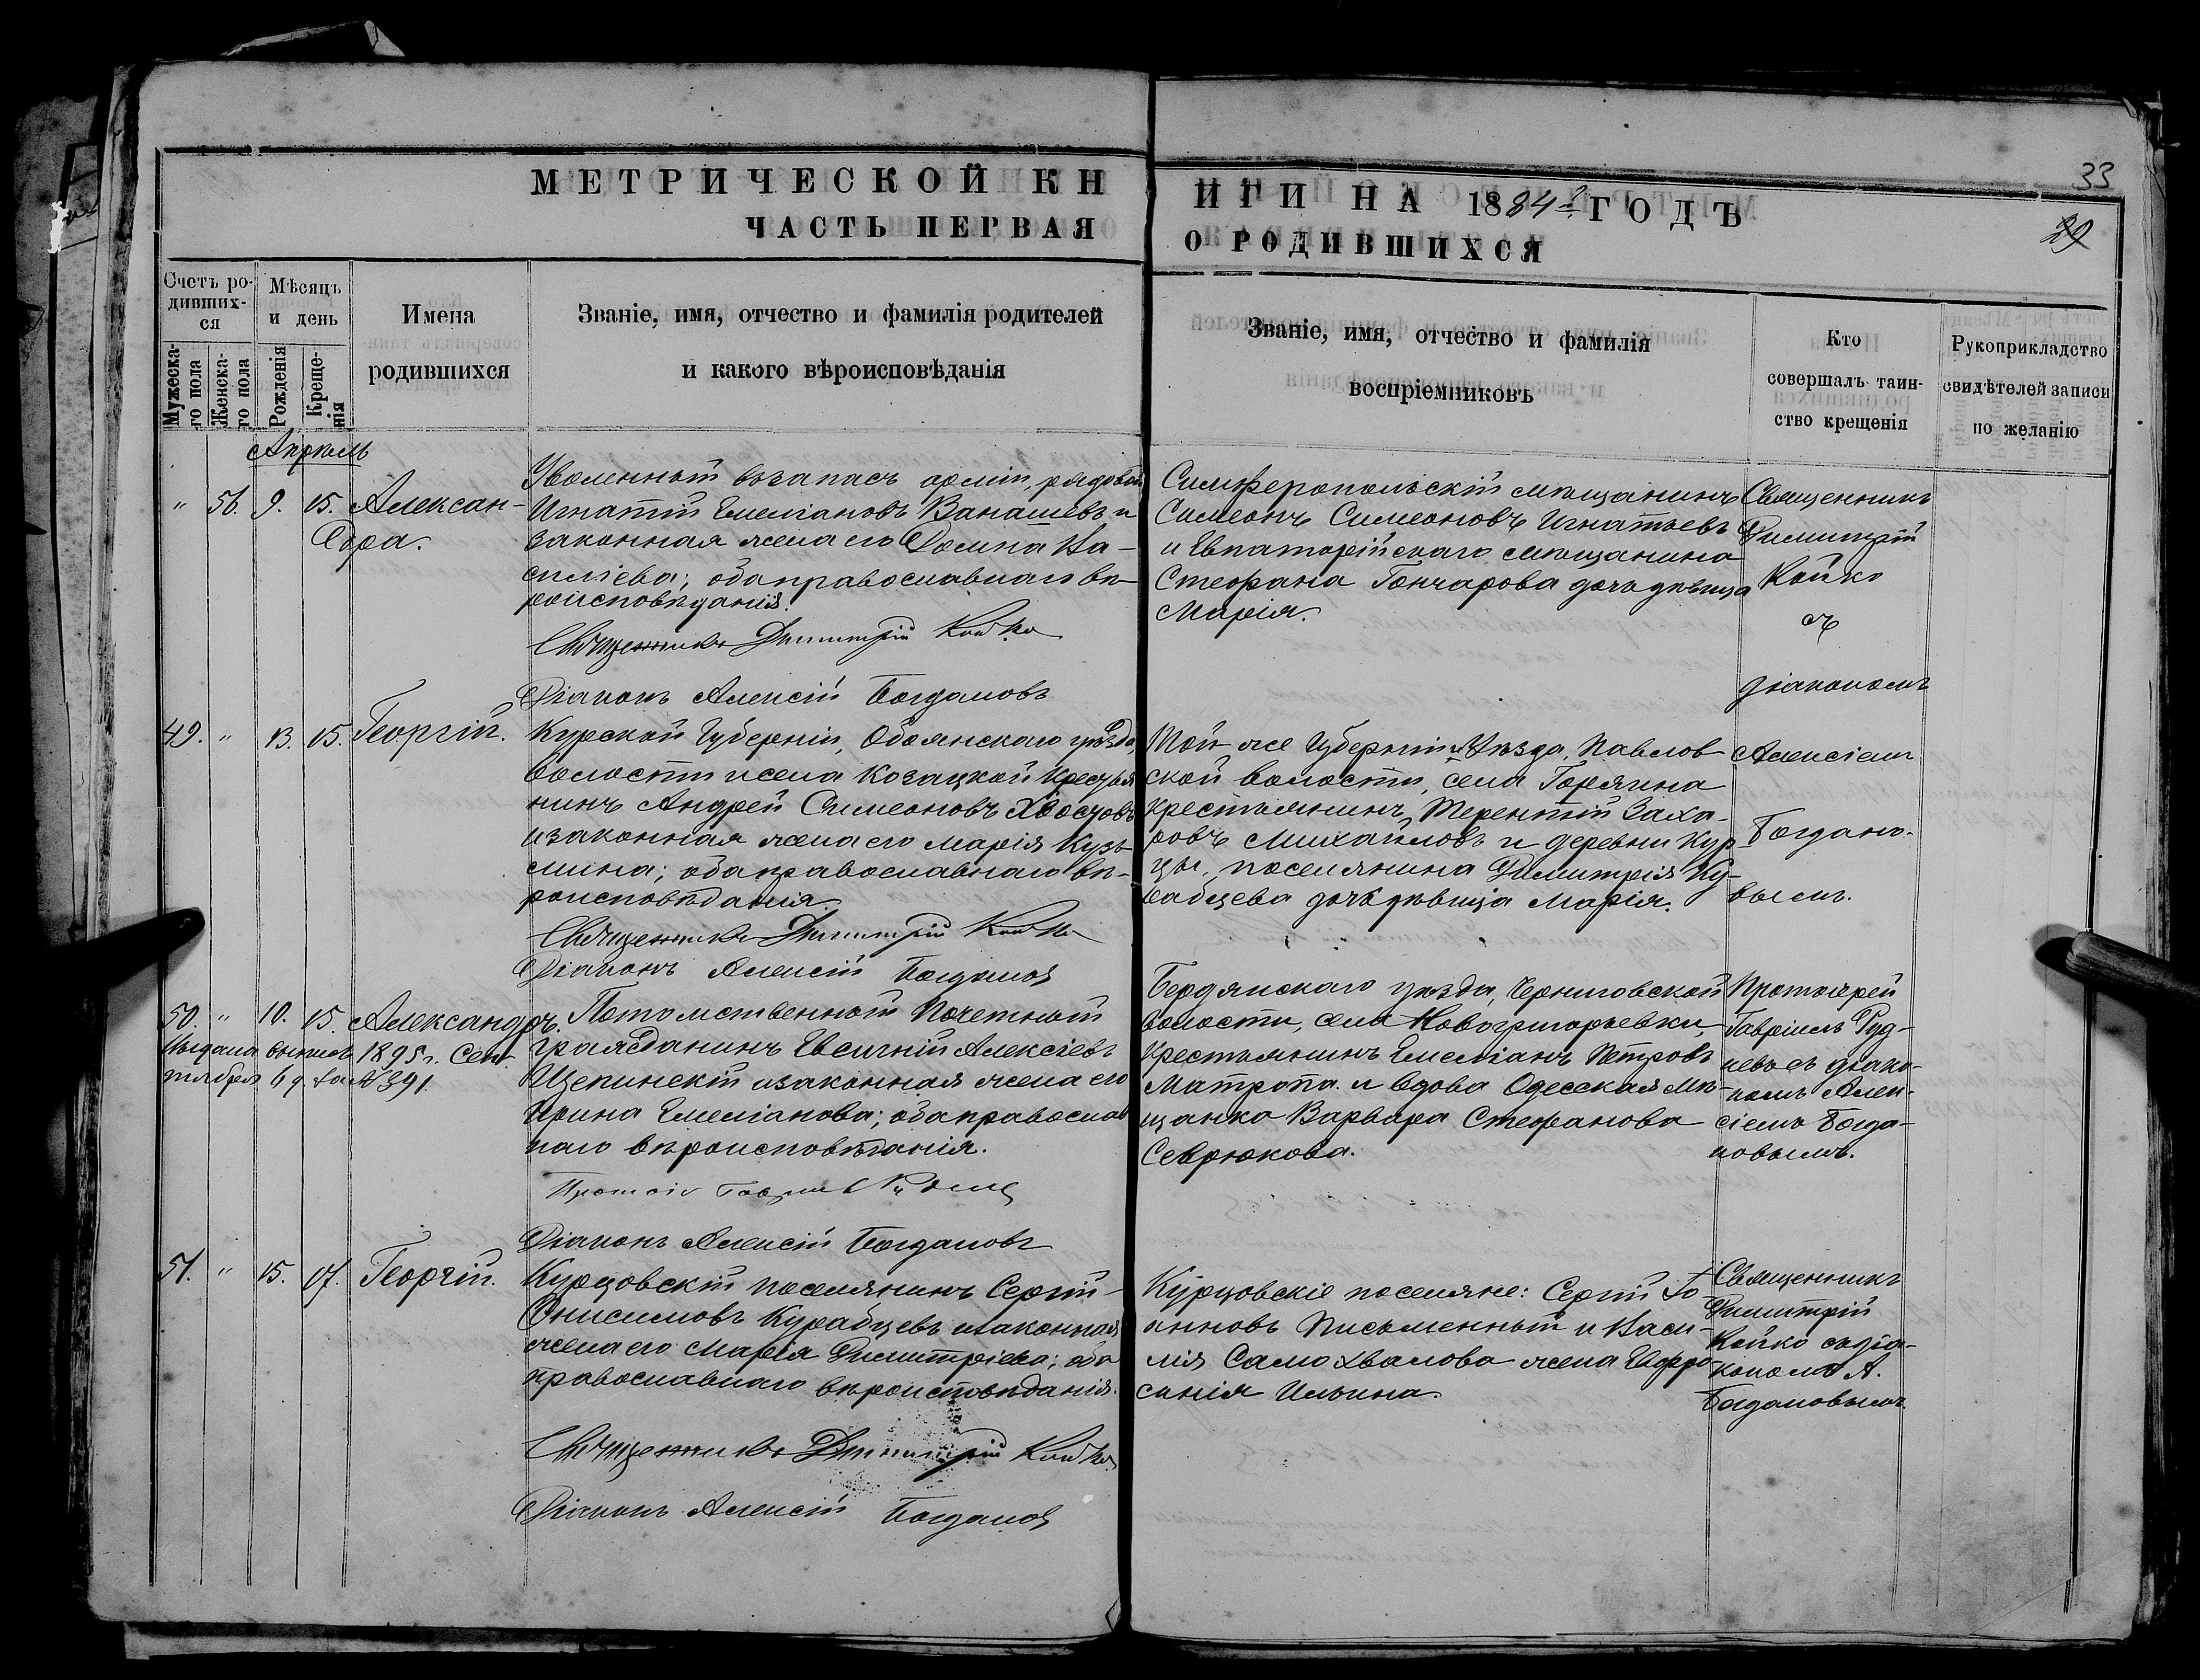 33
29
МЕТРИЧЕСКОЙ КНИГИ НА 1884й ГОДЪ
ЧАСТЬ ПЕРВАЯ О РОДИВШИХСЯ
Счетъ ро-
дивших-
ся
Мужеска-
го пола
Женска-
го пола
Мѣсяцъ
и день
Рожденія
Креще-
нія
Имена
родившихся
Званіе, имя, отчество и фамилія родителей
и какого вѣроисповѣданія
Званіе, имя, отчество и фамилія
воспріемниковъ
Кто
совершалъ таин-
ство крещенія
Рукоприкладство
свидѣтелей записи
по желанію
Апрѣль
" 56. 9. 15. Алексан-
дра.
Уволенный въ запасъ арміи, рядовой
Игнатій Емеліановъ Ванашевъ и
законная жена его Домна Ва-
силіева; оба православнаго вѣ-
роисповѣданія.
Священникъ Димитрій Койко
Діаконъ Алексій Богдановъ
Симферопольскій мѣщанинъ
Симеонъ Симеоновъ Игнатьевъ
и Евпаторійскаго мѣщанина
Стефана Гончарова дочь дѣвица
Марія.
Священникъ
Димитрій
Койко
съ
діакономъ
49. " 13. 15. Георгій.
Курской Губерніи, Обоянскаго уѣзда
волости и села Козацкой крестья
нинъ Андрей Симеоновъ Хвостовъ
и законная жена его Марія Кузь-
мина; оба православнаго вѣ-
роисповѣданія.
Священникъ Димитрій Койко
Діаконъ Алексій Богдановъ
Той же Губерніи и Уѣзда, Павлов-
ской волости, села Горяина
крестьянинъ Терентій Заха-
ровъ Михайловъ и деревни Кур-
цы, поселянина Димитрія Ку-
рабцева дочь дѣвица Марія.
Алексіемъ
Богдано-
вымъ.
50. " 10. 15. Александръ.
Выдана выпись 1895 г. Сен-
тября 6 д. за № 391.
Потомственный Почетный
Гражданинъ Евсигній Алексіевъ
Щепинскій и законная жена его
Ирина Емеліанова; оба православ
наго вѣроисповѣданія.
Діаконъ Алексій Богдановъ
Бердянскаго уѣзда, Черниговской
волости, села Новогригорьевки,
крестьянинъ Емеліанъ Петровъ
Матропа и вдова Одесская мѣ-
щанка Варвара Стефанова
Севрюкова.
Протоіерей
Гавріилъ Руд-
невъ съ діако-
номъ Алек-
сіемъ Богда-
новымъ.
51. " 15. 17. Георгій.
Курцовскій поселянинъ Сергій
Онисимовъ Курабцевъ и законная
жена его Марія Димитріева; оба
православнаго вѣроисповѣданія.
Священникъ Димитрій Койко
Діаконъ Алексій Богдановъ
Курцовскіе поселяне: Сергій Іо-
анновъ Письменный и Васи-
лія Самохвалова жена Евфро-
синія Ильина.
Священникъ
Димитрій
Койко съ діа-
кономъ А.
Богдановымъ